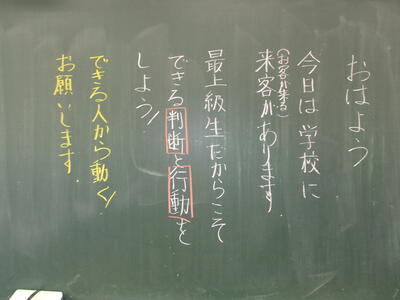 おはよう
今日は学校に
来客があります
(お客が来る)
最上級生だからこそ
できる判断と行動を
しよう!
できる人から動く!
お願いします.